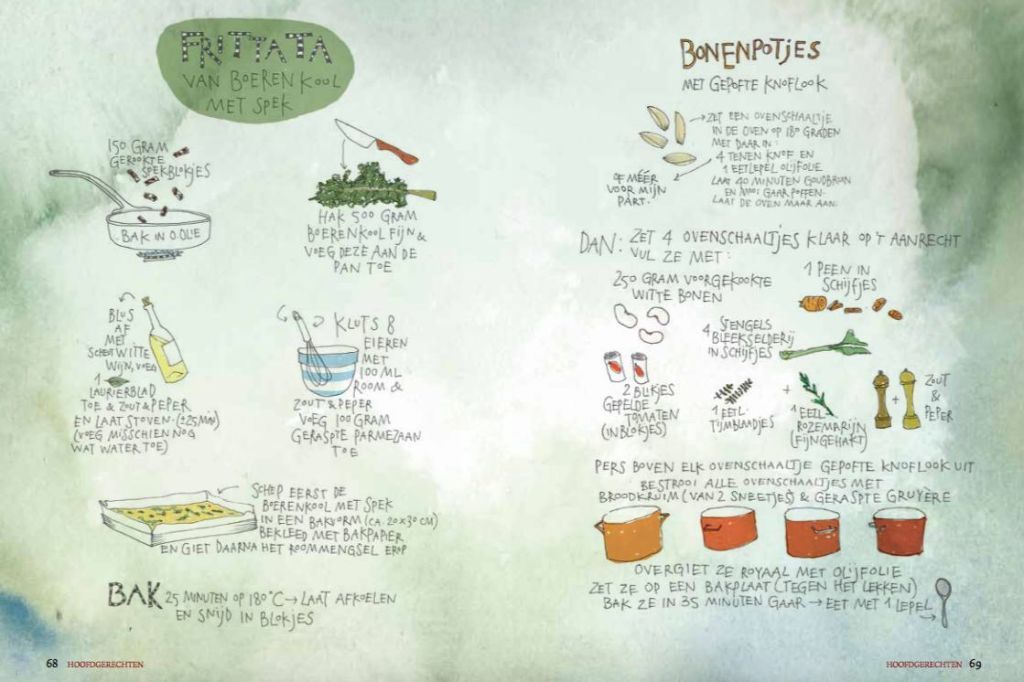 FRITTATA
VAN BOERENKOOL
MET SPEK
150 GRAM
GEROOKTE
SPEKBLOKJES
BAK IN O.OLIE
HAK 500 GRAM
BOERENKOOL FIJN &
VOEG DEZE AAN DE
PAN TOE
BLUS
AF
MET
SCHEUT WITTE
WIJN, VOEG
1
LAURIERBLAD
TOE & ZOUT & PEPER
EN LAAT STOVEN (±25 MIN)
(VOEG MISSCHIEN NOG
WAT WATER TOE)
KLUTS 8
EIEREN
MET
100 ML
ROOM &
ZOUT & PEPER
VOEG 100 GRAM
GERASPTE PARMEZAAN
TOE
SCHEP EERST DE
BOERENKOOL MET SPEK
IN EEN BAKVORM (CA. 20 x 30 CM)
BEKLEED MET BAKPAPIER
EN GIET DAARNA HET ROOMMENGSEL EROP
BAK 25 MINUTEN OP 180°C → LAAT AFKOELEN
EN SNIJD IN BLOKJES
68 HOOFDGERECHTEN
BONENPOTJES
MET GEPOFTE KNOFLOOK
ZET EEN OVENSCHAALTJE
IN DE OVEN OP 180 GRADEN
MET DAARIN:
4 TENEN KNOF EN
1 EETLEPEL OLIJFOLIE
LAAT 40 MINUTEN GOUDBRUIN
EN MOOI GAAR POFFEN.
LAAT DE OVEN MAAR AAN.
OF MÉÉR
VOOR MIJN
PART.
DAN: ZET 4 OVENSCHAALTJES KLAAR OP 'T AANRECHT
VUL ZE MET:
250 GRAM VOORGEKOOKTE
WITTE BONEN
1 PEEN IN
SCHIJFJES
4 STENGELS
BLEEKSELDERIJ
IN SCHIJFJES
2 BLIKJES
GEPELDE
TOMATEN
(IN BLOKJES)
1 EETL.
TIJMBLAADJES
+
1 EETL.
ROZEMARIJN
(FIJNGEHAKT)
+
ZOUT
&
PEPER
PERS BOVEN ELK OVENSCHAALTJE GEPOFTE KNOFLOOK UIT
BESTROOI ALLE OVENSCHAALTJES MET
BROODKRUIM (VAN 2 SNEETJES) & GERASPTE GRUYÈRE
OVERGIET ZE ROYAAL MET OLIJFOLIE
ZET ZE OP EEN BAKPLAAT (TEGEN HET LEKKEN)
BAK ZE IN 35 MINUTEN GAAR → EET MET 1 LEPEL
HOOFDGERECHTEN 69